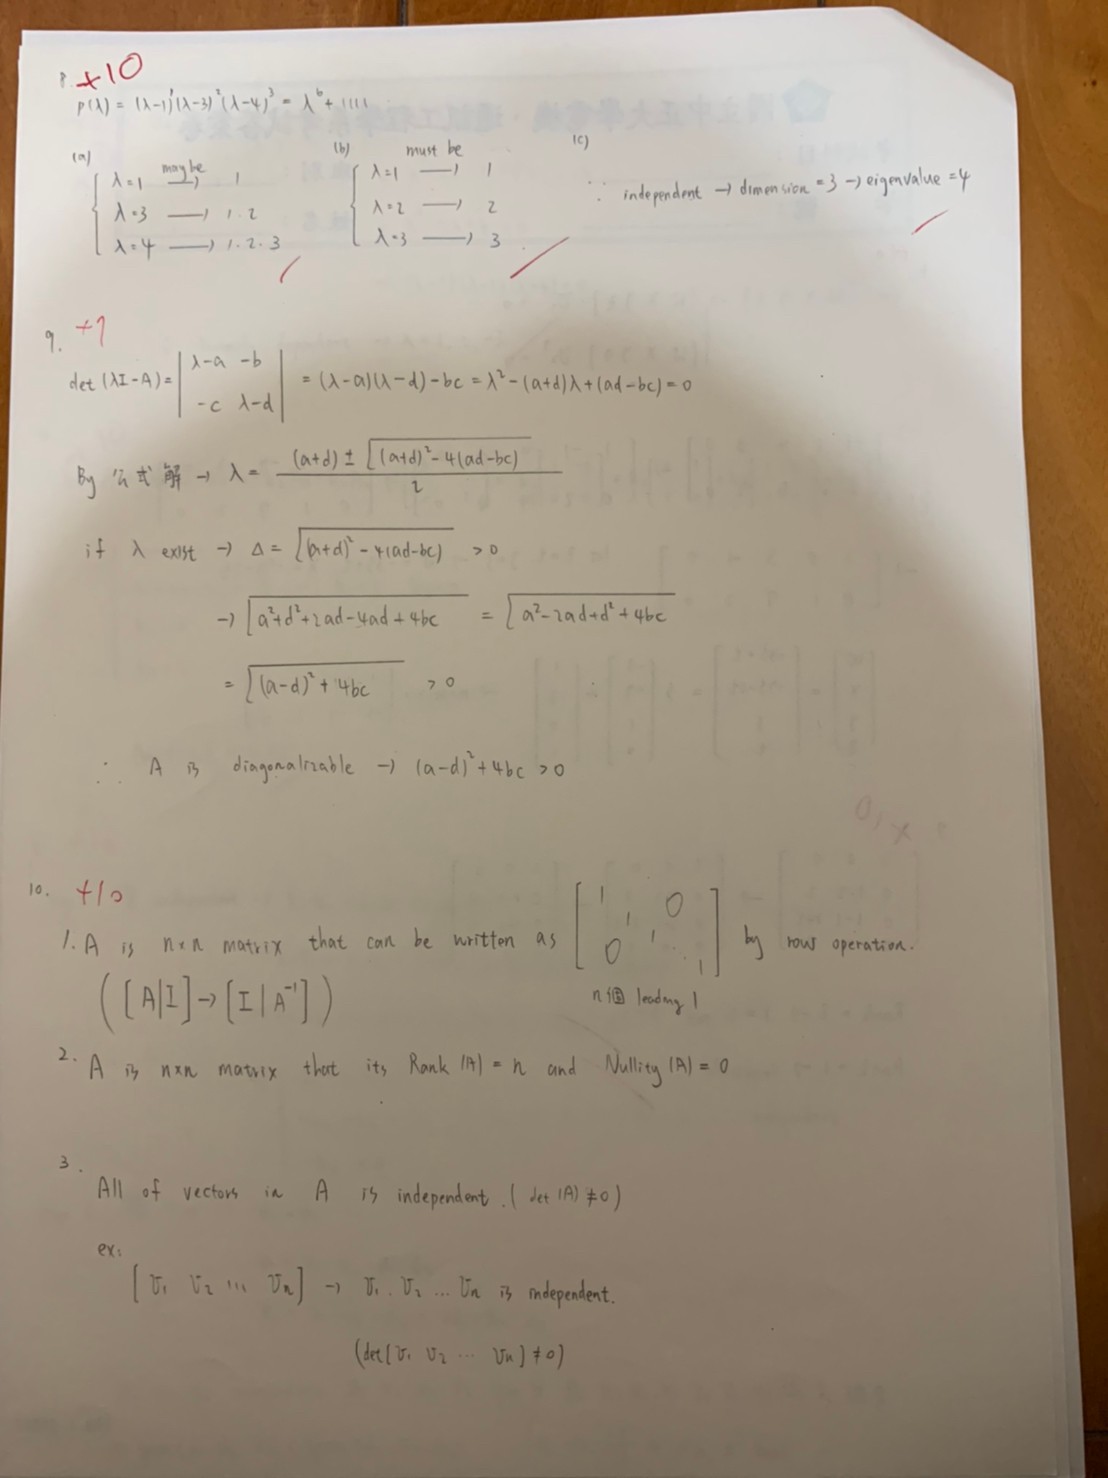 8. +10
p(λ) = (λ-1)¹(λ-3)²(λ-4)³ = λ⁶+1111
(a)
λ=1 maybe → 1
λ=3 → 1.2
λ=4 → 1.2.3
(b)
λ=1 must be → 1
λ=2 → 2
λ=3 → 3
(c)
∵ independent → dimension=3 → eigenvalue=4
9.
det(λI-A)= | λ-a -b
-c λ-d | = (λ-a)(λ-d)-bc = λ²-(a+d)λ+(ad-bc)=0
By 公式解 → λ= (a+d)±√(a+d)²-4(ad-bc) / 2
if λ exist → Δ= √(a+d)²-4(ad-bc) >0
→ √a²+d²+2ad-4ad+4bc = √a²-2ad+d²+4bc
= √(a-d)²+4bc >0
∴ A is diagonalizable → (a-d)²+4bc >0
10. +10
1. A is n×n matrix that can be written as [1 1 0 0 1 ⋱ 1] by row operation.
([A|I]→[I|A⁻¹])
n個 leading 1
2. A is n×n matrix that its Rank(A)=n and Nullity(A)=0
3.
All of vectors in A is independent.(det(A)≠0)
ex:
[v₁ v₂ ... vₙ] → v₁.v₂...vₙ is independent.
(det[v₁ v₂ ... vₙ]≠0)